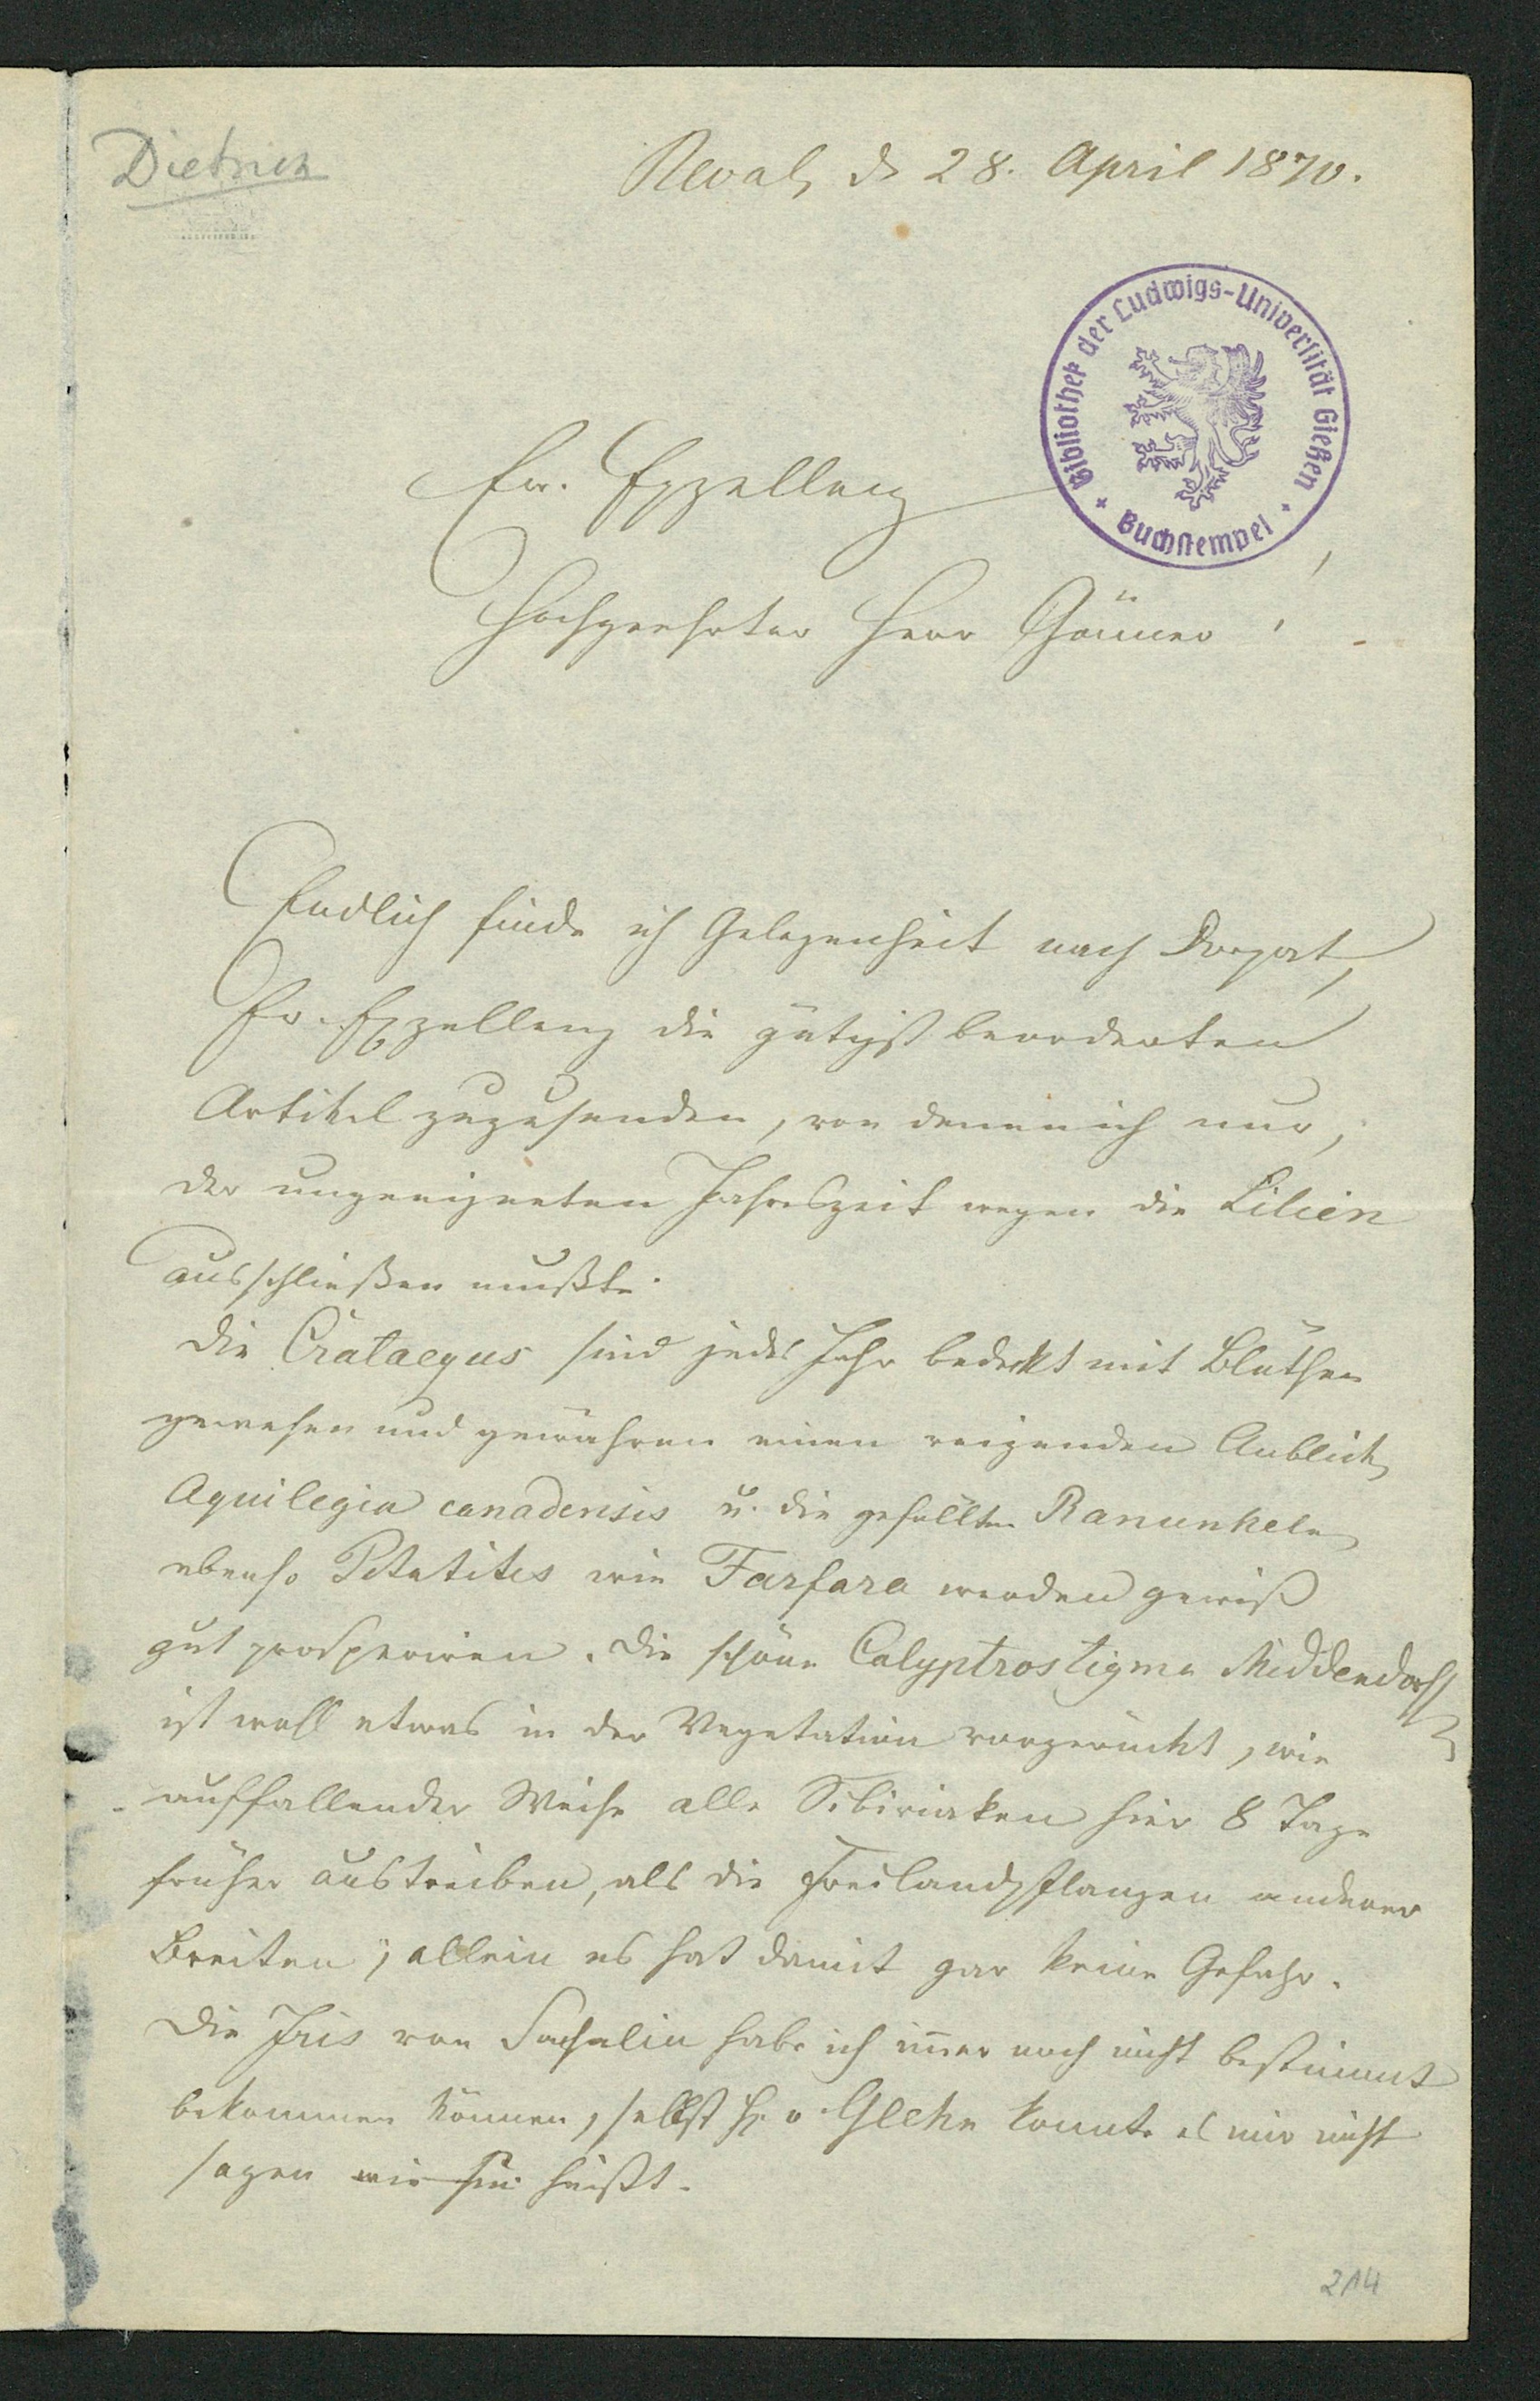 Dietrich
Reval, d. 28. April 1870.
Bibliothek der Ludwigs-Universität Gießen
Buchstempel
Ew. Exzellenz
Hochgeehrter Herr Gönner!
Endlich finde ich Gelegenheit nach Dorpat,
Ew. Exzellenz die gütigst beorderten
Artikel zuzusenden, von denen ich nur,
der ungeeigneten Jahreszeit wegen die Lilien
ausschließen mußte.
Die Crataegus sind jedes Jahr bedeckt mit Blüthen
gewesen und gewähren einen reizenden Anblick,
Aquilegia canadensis u. die gefüllten Ranunkeln,
ebenso Petatites wie Farfara werden gewiß
gut prosperiren. Die schöne Calyptrostigma Middendorff
ist wohl etwas in der Vegetation vorgerückt, wie
auffallender Weise alle Sibiriaken hier 8 Tage
früher austreiben, als die Freilandpflanzen anderer
Breiten; allein es hat damit gar keine Gefahr.
Die Iris von Sachalin habe ich imer noch nicht bestimmt
bekommen können, selbst H. v. Glehn konnte es mir nicht
sagen wie sie heißt.
214